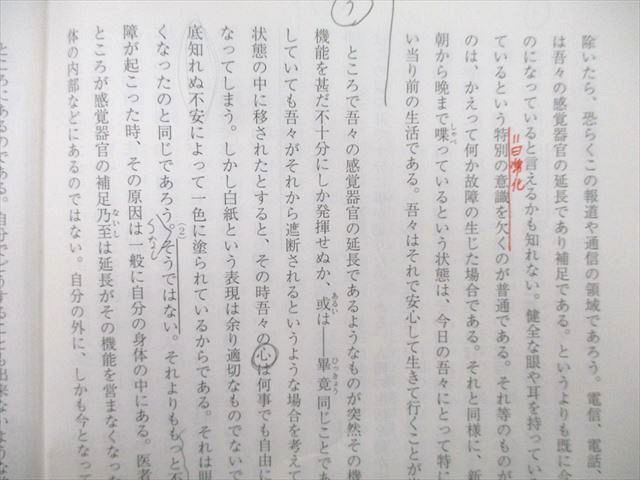 除いたら、恐らくこの報道や通信の領域であろう。電信、電話、
は吾々の感覚器官の延長であり補足である。というよりも既に今
のになっていると言えるかも知れない。健全な眼や耳を持ってい
ているという特別の意識を欠くのが普通である。それ等のものが
=日常化
のは、かえって何か故障の生じた場合である。それと同様に、新
朝から晩まで喋っているという状態は、今日の吾々にとって特に
しゃべ
い当り前の生活である。吾々はそれで安心して生きて行くことが
う
ところで吾々の感覚器官の延長であるようなものが突然その機
機能を甚だ不十分にしか発揮せぬか、或は――畢竟同じことであ
あるい
ひっきょう
していても吾々がそれから遮断されるというような場合を考えて
状態の中に移されたとすると、その時吾々の心は何事でも自由に
なってしまう。しかし白紙という表現は余り適切なものでないで
底知れぬ不安によって一色に塗られているからである。それは眼
くなったのと同じであろう。そうではない。それよりももっと不
(2)
障が起こった時、その原因は一般に自分の身体の中にある。医者
ところが感覚器官の補足乃至は延長がその機能を営まなくなった
ないし
体の内部などにあるのではない。自分の外に、しかも今となって
ところにあるのである。自分でどうすることも出来ないような